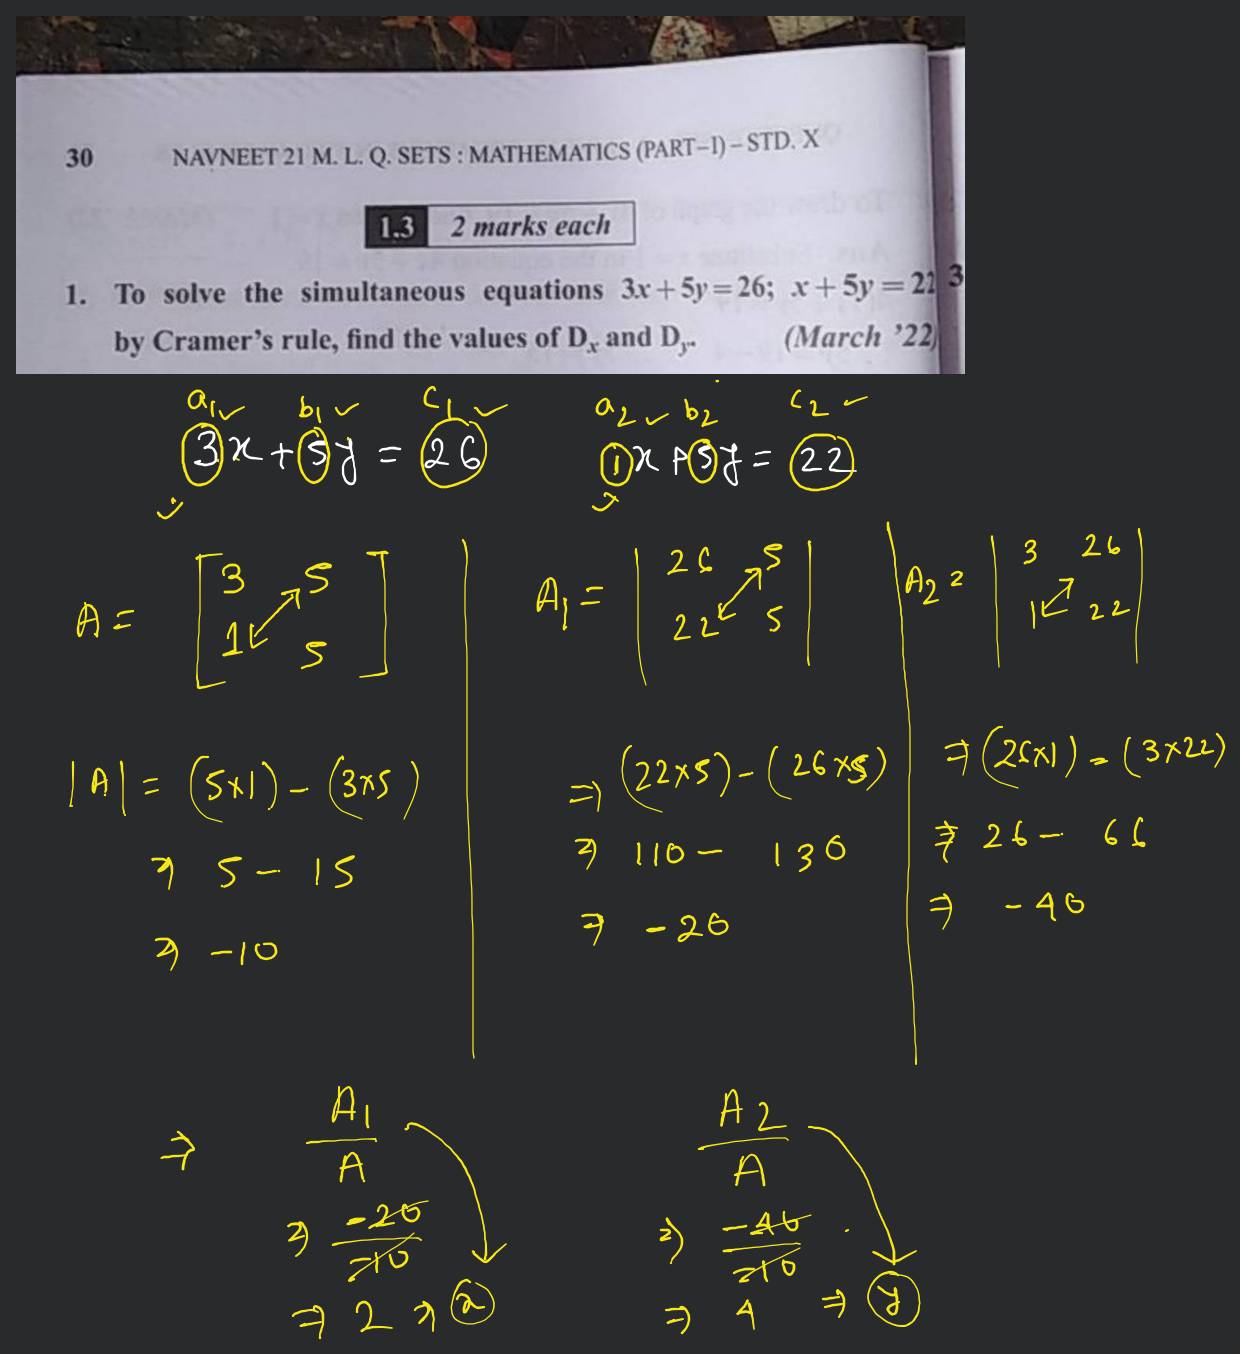 30 NAVNEET 21 M. L. Q. SETS : MATHEMATICS (PART–I) – STD. X
1.3 2 marks each
1. To solve the simultaneous equations 3x + 5y = 26; x + 5y = 22 3
by Cramer's rule, find the values of Dx and Dy. (March '22)
a1 ✓ b1 ✓ c1 ✓ a2 ✓ b2 c2 ✓
3x + 5y = 26 1x + 5y = 22
A = [ 3 5 A1 = | 26 5 | A2 = | 3 26 |
1 5 ] 22 5 1 22
|A| = (5×1) – (3×5) ⇒ (22×5) – (26×5) ⇒ (26×1) – (3×22)
⇒ 5 – 15 ⇒ 110 – 130 ⇒ 26 – 66
⇒ –10 ⇒ –20 ⇒ –40
⇒ A1 A2
A A
⇒ –20 ⇒ –40
–10 –10
⇒ 2 ⇒ x ⇒ 4 ⇒ y